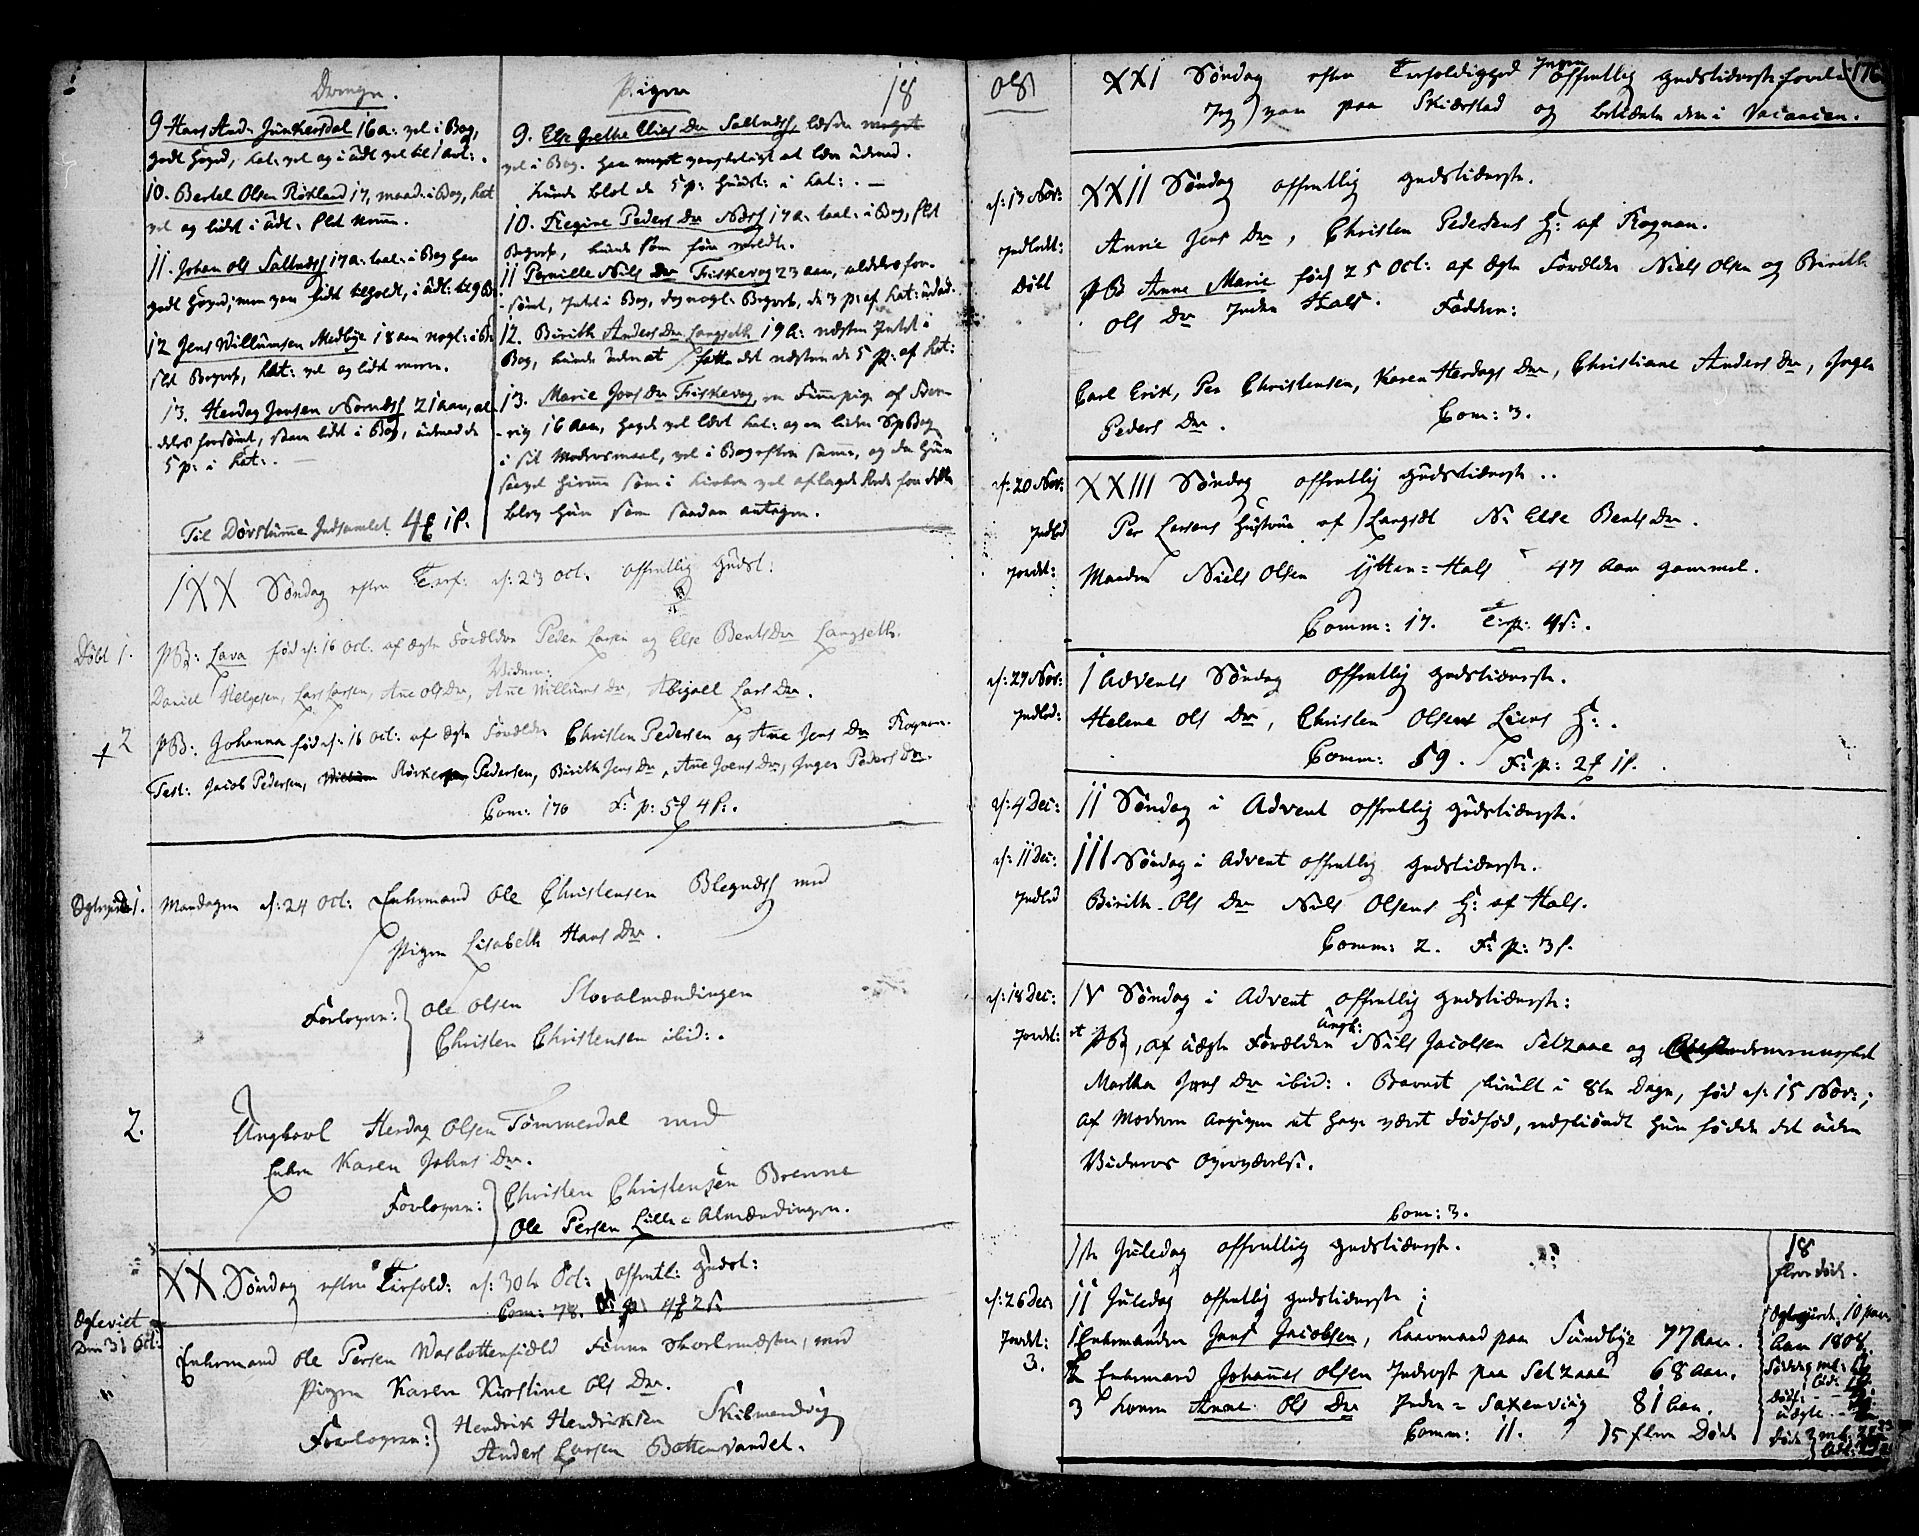 Drenge.
9 Hans And: Junkersdal 16 a: vel i Bog,
godt Hoved, Cat: vel og i udt vel til 1 Art:.
10. Bertel Olsen Rökland 17, maad. i Bog, Cat
vel og lidt i udt.
11. Johan Ols Saltnæss 17 a: taal: i Bog har
12 Jens Willumsen Medbye 18 aar nogl: i
slet Begreb, Cat: vel og lidt meere.
13. Herdag Jensen Nornæss 21 aar, al
deles forsömt, stav lidt i Bog, udenad de
5 p: i Cat:.
Til Dövstumme Indsamlet. 4 1 s.
Pigen 18
9. Else Grethe Elias Dr Saltnæss, læser meget
vel i Bog. har meget vanskeligt at lære udenad.
kunde blot de 5 p: i Cat:. —
10. Regine Peders Dr Næss 17 a: taal: i Bog, slet
Begreb, kunde som för meldt.
11 Pernille Niels Dr Fiskevog 23 aar, aldeles for-
sömt, Intet i Bog, dog nogl: Begreb, de 3 p: af Cat: udad.
12. Birith Anders Dr Langseth 19 a: næsten Intet i
Bog, kunde uden at fatte det næsten de 5 p: af Cat:
13. Marie Jons Dr Fiskevog, en Finnepige af Sver-
rig 16 Aar, havde vel læst Cat: og en liden Bog
i sit Modersmaal, vel i Bog efter samme, og da hun
saavel hiemme som i Kirken vel aflagde Rede for dette
blev hun som saadan antagen.
1XX Söndag efter Trf: d: 23 Oct. offentlig Gudst:
Döbt 1. PB: Lava föd d: 16 Oct. af ægte Forældre Peder Larsen og Else Bents Dr Langseth.
Viderer:
Daniel Helgesen, Lars Larsen, Ane Ols Dr, Ane Willums Dr, Abigael Lars Dr.
+ 2 PB: Johanna föd d: 16 Oct: af ægte Forældre Christen Pedersen og Ane Jens Dr Rognan.
Test: Jacob Pedersen, Störke Pedersen, Birith Jens Dr, Ane Joens Dr, Inger Peders Dr.
Com: 170 F: p: 5 4 s.
Ægteviede 1. Mandagen d: 24 Oct: Enkemand Ole Christensen Blegnæss med
Pigen Lisabeth Hans Dr.
Forlovere: Ole Olsen Storalmændingen
Christen Christensen ibid:.
2. Ungkarl Herdag Olsen Tömmerdal med
Enken Karen Johns Dr.
Forlovere: Christen Christensen Brenne
Ole Persen Lille = Almændingen.
XX. Söndag efter Trefold: d: 30te Oct: offentl: Gudst:
Com: 78. F: p: 4 2 s.
Ægteviet
Den 31 Oct: Enkemand Ole Persen Wasbottenfiæld Finne Skolemester, med
Pigen Karen Kirstine Ols Dr.
Forlovere: Hendrik Hendriksen Skibmendvig
Anders Larsen Bottenvandet.
08 176
XXI Söndag efter Trefoldighed Ingen offentlig Gudstieneste
Jeg var paa Skierstad og betiente den i Vacancen.
d: 13 Nov: XXII Söndag offentlig Gudstieneste.
Indledt: Anne Jens Dr, Christen Pedersens H: af Rognan.
Döbt PB Anne Marie föd 25 Oct: af ægte Forældre Niels Olsen og Birith
Ols Dr Indre Hals. Faddere:
Carl Erik, Per Christensen, Karen Herdags Dr, Christiane Anders Dr, Inger
Peders Dr. Com: 3.
d: 20 Nov: XXIII Söndag offentlig Gudstieneste..
Indled Per Larsens Hustrue af Langset N. Else Bents Dr.
Jordet: Manden Niels Olsen Ytter = Hals 47 Aar gammel.
Comm: 17. T: p: 4 s:.
d: 27 Nov: 1 Advents Söndag offentlig Gudstieneste.
Indled: Helene Ols Dr, Christen Olsens Liens H:.
Comm: 59. F: p: 2 1 s.
d: 4 Dec: II Söndag i Advent offentlig Gudstieneste.
d: 11 Dec: III Söndag i Advent offentlig Gudstieneste.
Indled Birith Ols Dr Niels Olsens H: af Hals.
Comm: 2. F: p: 3 s.
d: 18 Dec: IV Söndag i Advent offentlig Gudstieneste:
Jordet: et PB, af uægte Forældre Ungk: Niels Jacobsen Selzaae og
Martha Jens Dr ibid:. Barnet skiult i 8te Dage, föd d: 15 Nov:;
af Moderen angiven at have været dödföd, endskiöndt hun födde det uden
Videres Overværelse.
Com: 3.
1ste Juledag offentlig Gudstieneste.
d: 26 Dec: II Juledag offentlig Gudstieneste:
Jordet: 1 Enkemanden Jens Jacobsen, Kaarmand paa Sundbye 77 Aar.
3. 2 Enkemand Johannes Olsen Inderst paa Selzaae 68 Aar.
3 Konen Anne Ols Dr Inder = Saxenvig 81 Aar.
Comm: 11. 15 flere Döde
18
flere döde.
Ægteviede 10 par.
Aar 1808.